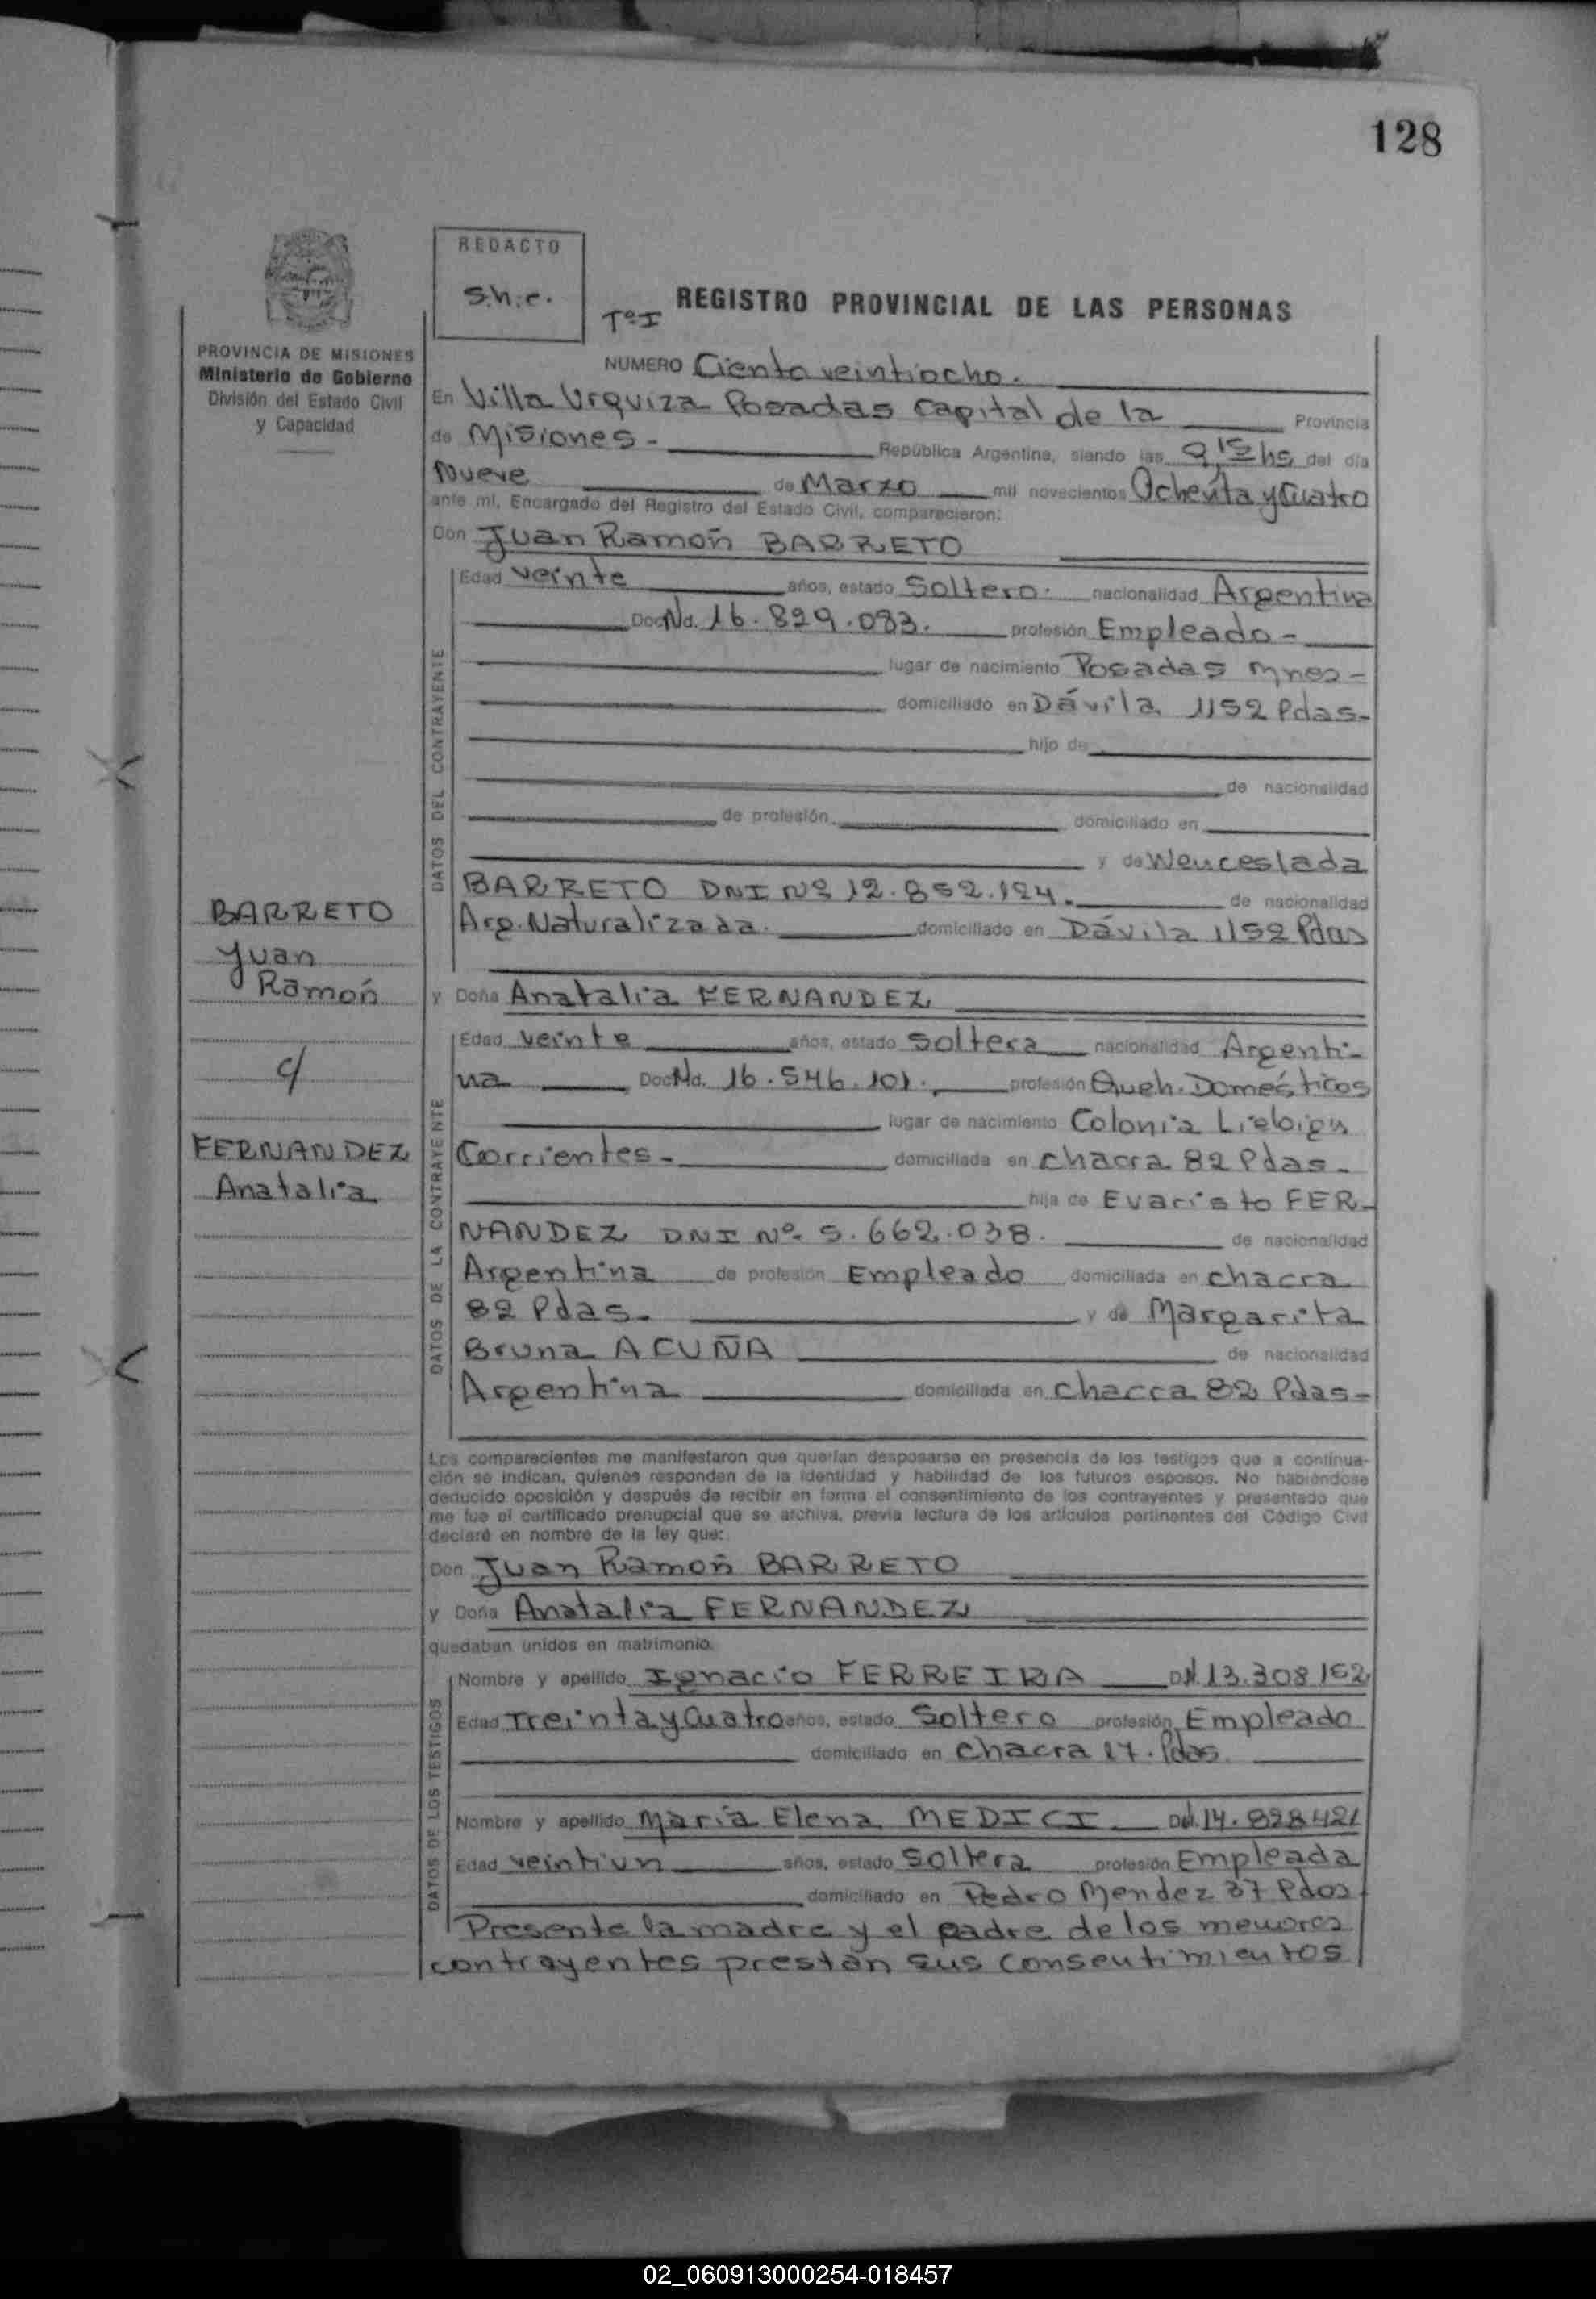 128
REDACTO
S.h.c.
Tº I
REGISTRO PROVINCIAL DE LAS PERSONAS
PROVINCIA DE MISIONES
Ministerio de Gobierno
División del Estado Civil
y Capacidad
NUMERO Ciento veintiocho.
En Villa Urquiza Posadas Capital de la Provincia
de Misiones - República Argentina, siendo las 9,15 hs del día
Nueve de Marzo mil novecientos Ochenta y Cuatro
ante mí, Encargado del Registro del Estado Civil, comparecieron:
Don Juan Ramón BARRETO
DATOS DEL CONTRAYENTE
Edad veinte años, estado Soltero. nacionalidad Argentina
Doc Nd. 16.829.083. profesión Empleado -
lugar de nacimiento Posadas Mnes -
domiciliado en Dávila 1152 Pdas -
hijo de
de nacionalidad
de profesión domiciliado en
y de Wenceslada
BARRETO DNI Nº 12.852.124. de nacionalidad
Arg. Naturalizada. domiciliado en Dávila 1152 Pdas
y Doña Anatalia FERNANDEZ
DATOS DE LA CONTRAYENTE
Edad veinte años, estado Soltera nacionalidad Argenti-
na Doc Nd. 16.546.101. profesión Queh. Domésticos
lugar de nacimiento Colonia Liebign
Corrientes - domiciliada en chacra 82 Pdas -
hija de Evaristo FER-
NANDEZ DNI Nº 5.662.038. de nacionalidad
Argentina de profesión Empleado domiciliada en chacra
82 Pdas - y de Margarita
Bruna ACUÑA de nacionalidad
Argentina domiciliada en chacra 82 Pdas -
BARRETO
Juan
Ramón
c/
FERNANDEZ
Anatalia
Los comparecientes me manifestaron que querían desposarse en presencia de los testigos que a continua-
ción se indican, quienes responden de la identidad y habilidad de los futuros esposos. No habiéndose
deducido oposición y después de recibir en forma el consentimiento de los contrayentes y presentado que
me fue el certificado prenupcial que se archiva, previa lectura de los artículos pertinentes del Código Civil
declaré en nombre de la ley que:
Don Juan Ramón BARRETO
y Doña Anatalia FERNANDEZ
quedaban unidos en matrimonio.
DATOS DE LOS TESTIGOS
Nombre y apellido Ignacio FERREIRA DNI. 13.308.162
Edad Treinta y Cuatro años, estado Soltero profesión Empleado
domiciliado en chacra 17. Pdas.
Nombre y apellido María Elena MEDICI DNI. 14.828.421
Edad veintiun años, estado Soltera profesión Empleada
domiciliado en Pedro Mendez 37 Pdas
Presente la madre y el padre de los menores
contrayentes prestan sus consentimientos
02_060913000254-018457